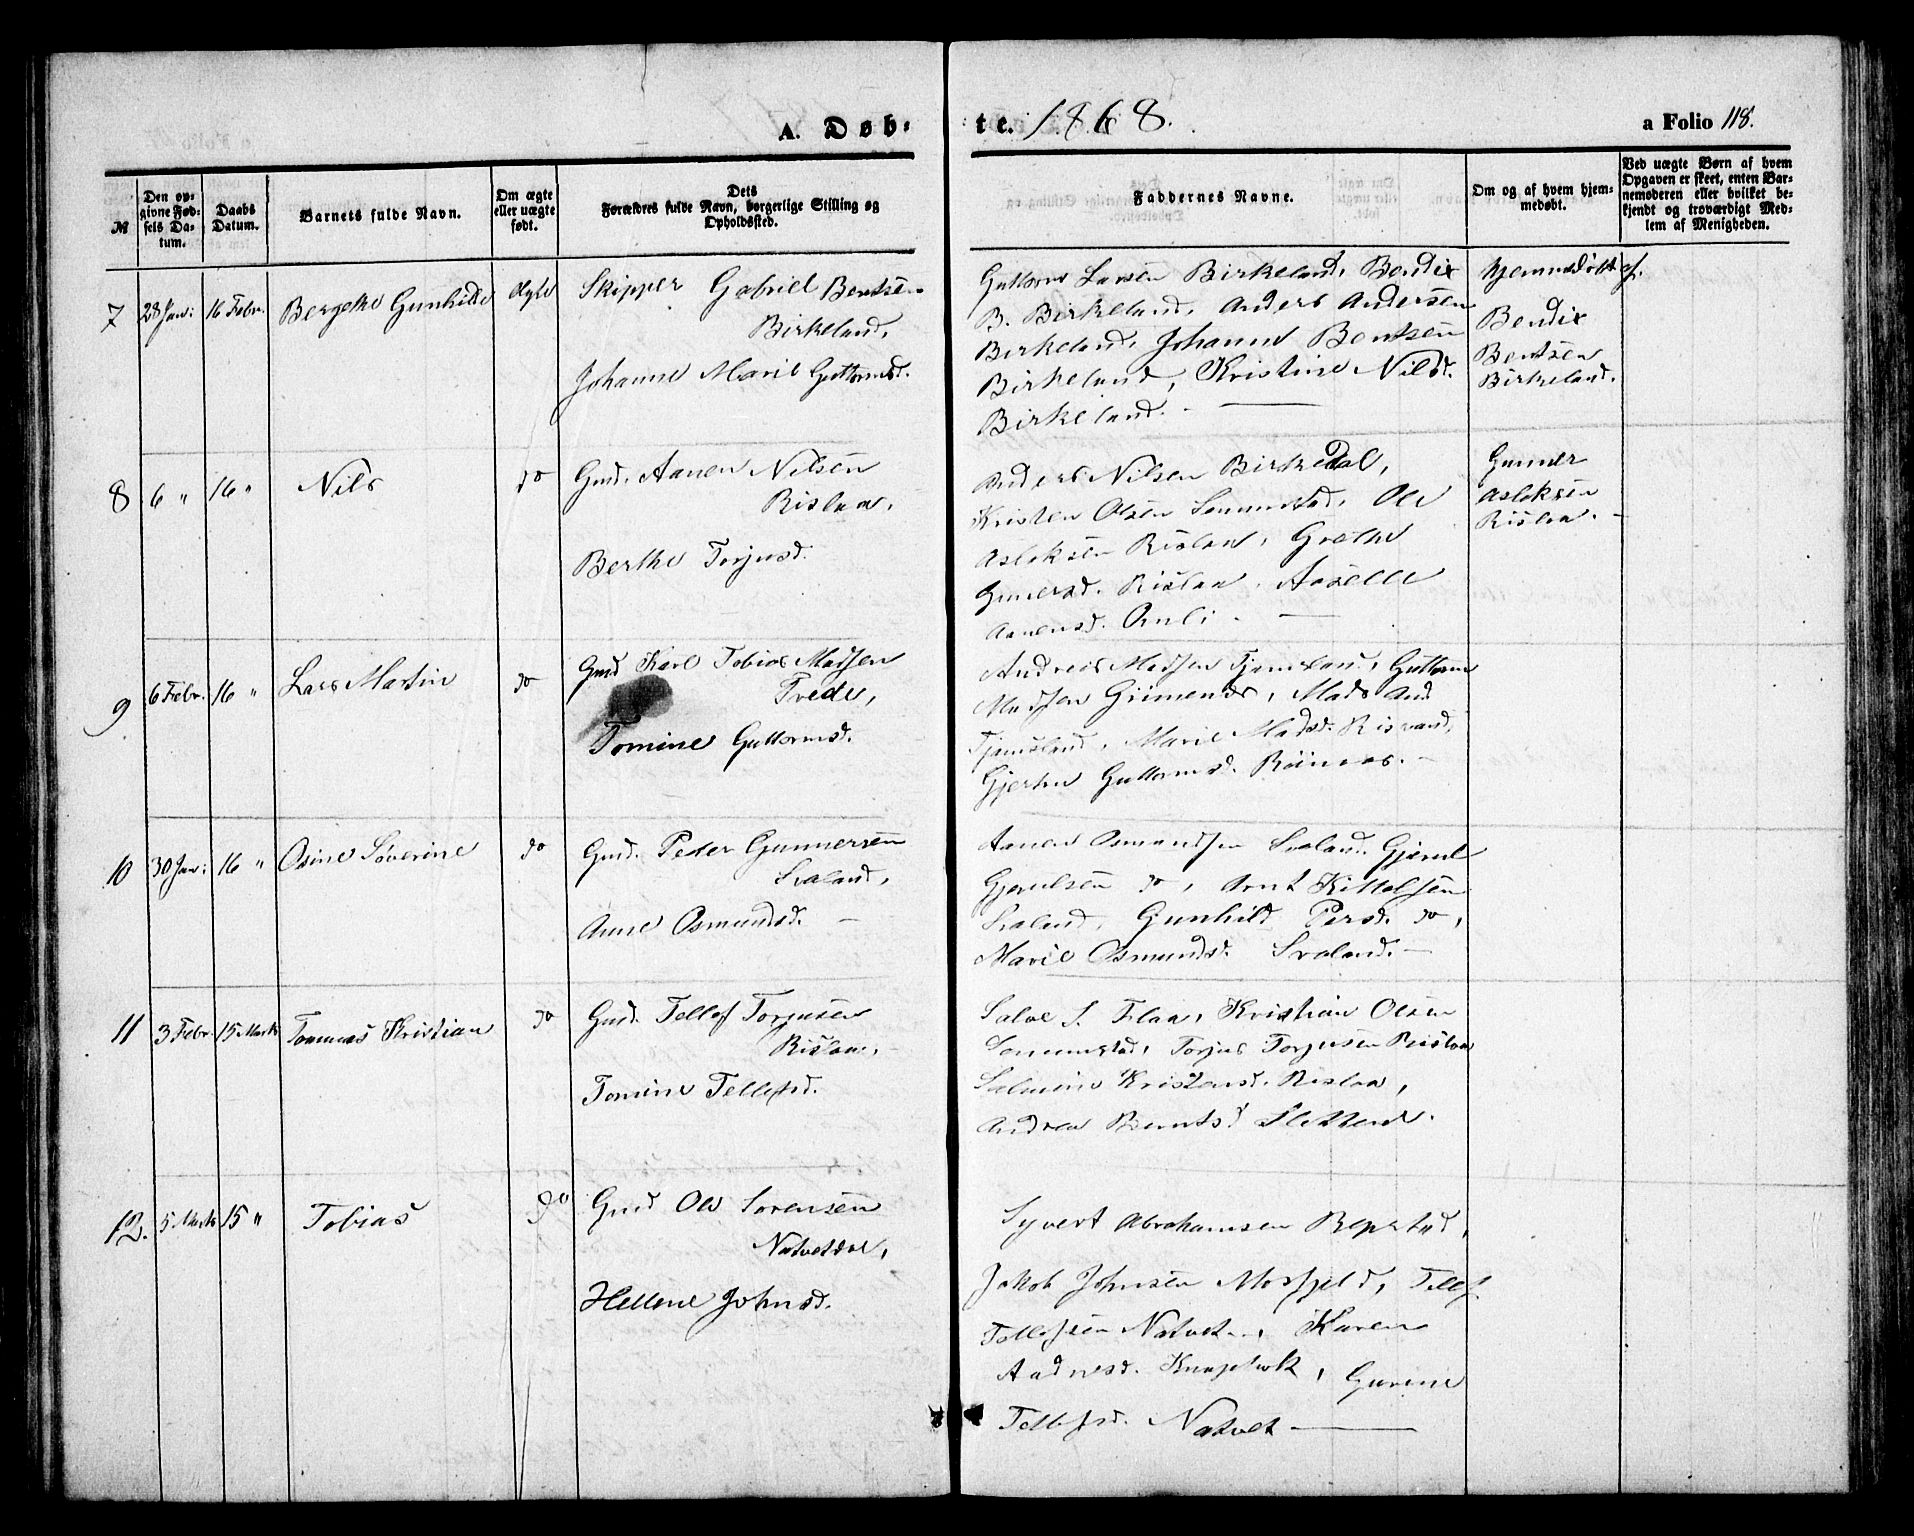 A. Døb-
te. 1868.
a Folio 118.
№
Den op-
givne Fød-
sels Da-
tum.
Daabs
Datum.
Barnets fulde Navn.
Om ægte
eller uægte
født.
Dets
Forældres fulde Navn, borgerlige Stilling og
Opholdssted.
Faddernes Navne.
Om og af hvem hjem-
medøbt.
Ved uægte Børn af hvem
Opgaven er skeet, enten Bar-
nemoderen eller hvilket be-
kjendt og troværdigt Med-
lem af Menigheden.
7
28 Jan:
16 Febr.
Bergethe Gunhilde
Ægte
Skipper Gabriel Bentsen
Birkeland,
Johanne Marie Guttormsd.
Guttorm Larsen Birkeland, Bendix
B. Birkeland, Anders Andersen
Birkeland, Johanne Bentsen
Birkeland, Kristine Nilsd.
Birkeland.
hjemmedøbt af.
Bendix
Bentsen
Birkeland.
8
6 "
16 "
Nils
do
Gmd. Aanen Nilsen
Rislaa,
Berthe Torjusd.
Anders Nilsen Birkedal,
Kristen Olsen Lonumstad, Ole
Asloksen Rislaa, Grethe
Gunersd. Rislaa, Aaselle
Aanensd. Aunli.
Gunner
Asloksen
Rislaa.
9
6 Febr.
16 "
Lars Martin
do
Gmd Karl Tobias Madsen
Tvede,
Tomine Guttormsd.
Andreas Madsen Tjomsland, Guttorm
Madsen Griimenes, Mads And
Tjomsland, Marie Madsd. Risvand,
Gjerthe Guttormsd. Röinaas.
10
30 Jan:
16 "
Osine Søverine
do
Gmd. Peder Gunnersen
Svaland,
Anne Osmundsd.
Aanen Osmundsen Svaland, Gjerul
Gjerulsen do, Arnt Kittelsen
Svaland, Gunhild Persd. do,
Marie Osmundsd. Svaland.
11
3 Febr.
15 Marts
Tommas Kristian
do
Gmd. Tellef Torjusen
Rislaa,
Tomine Tellefsd.
Salve S. Flaa, Kristian Olsen
Lonumstad, Torjus Torjusen Rislaa
Salmine Kristensd. Rislaa,
Andrea Berntsd Slettene.
12.
5 Marts
15 "
Tobias
do
Gmd Ole Sorensen
Natvetdal,
Hellene Johnsd.
Syvert Abrahamsen Repstad,
Jakob Johnsen Mosfjeld, Tellef
Tellefsen Natvet, Karen
Aadnesd. Knapehøk, Gurine
Tellefsd. Natvet